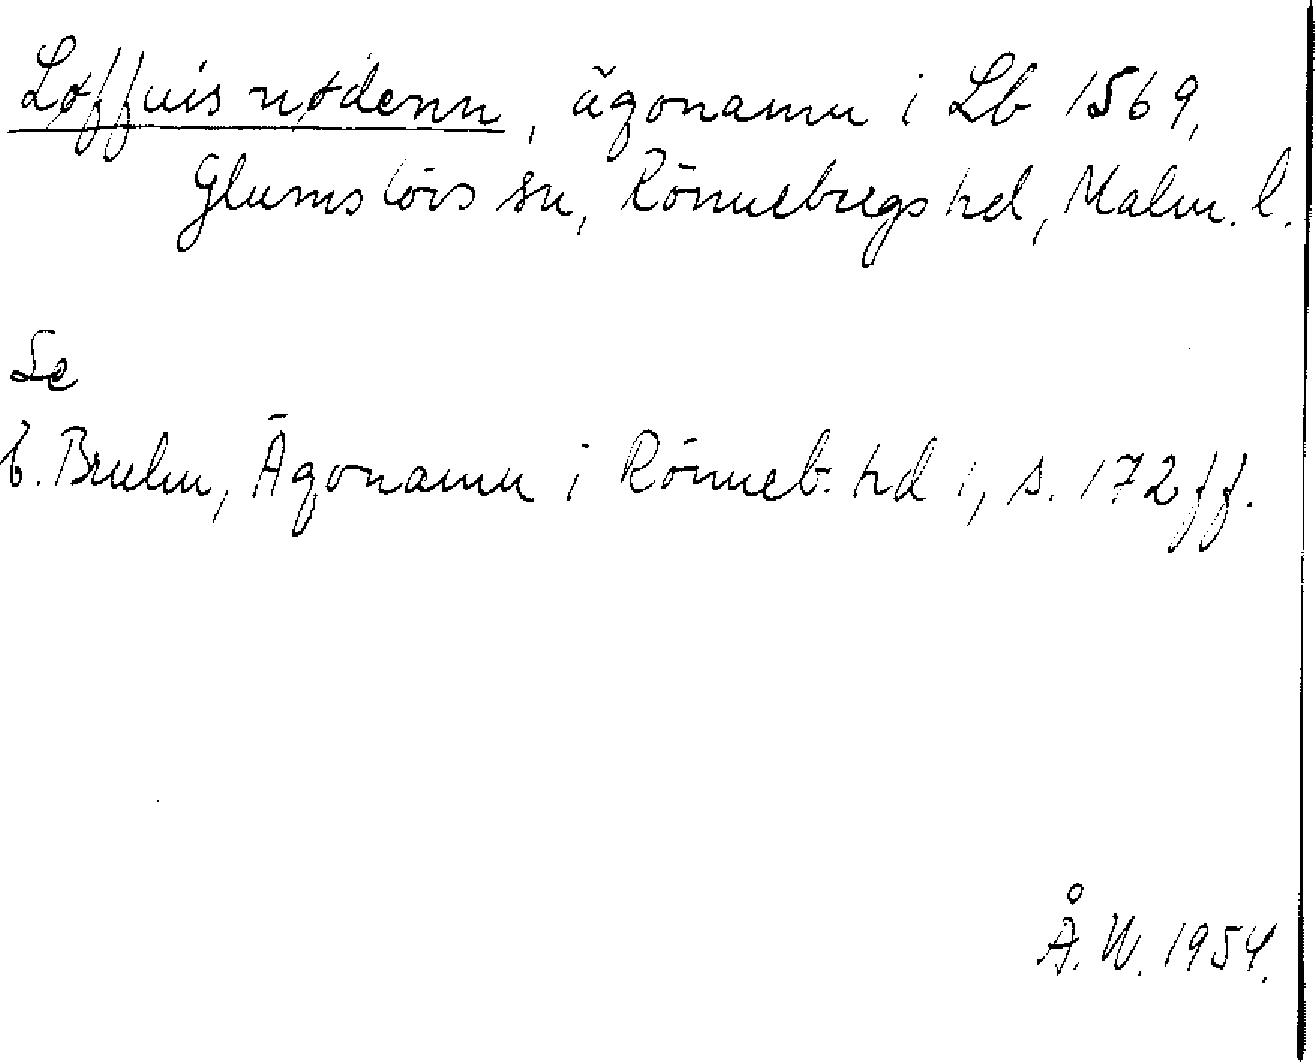 Løffuis rødenn, ägonamn i Lb 1569,
Glumslövs sn, Rönnebergs hd, Malm. l.
Se
B. Bruhn, Ägonamn i Rönneb. hd 1, s. 172 ff.
Å. W. 1954.